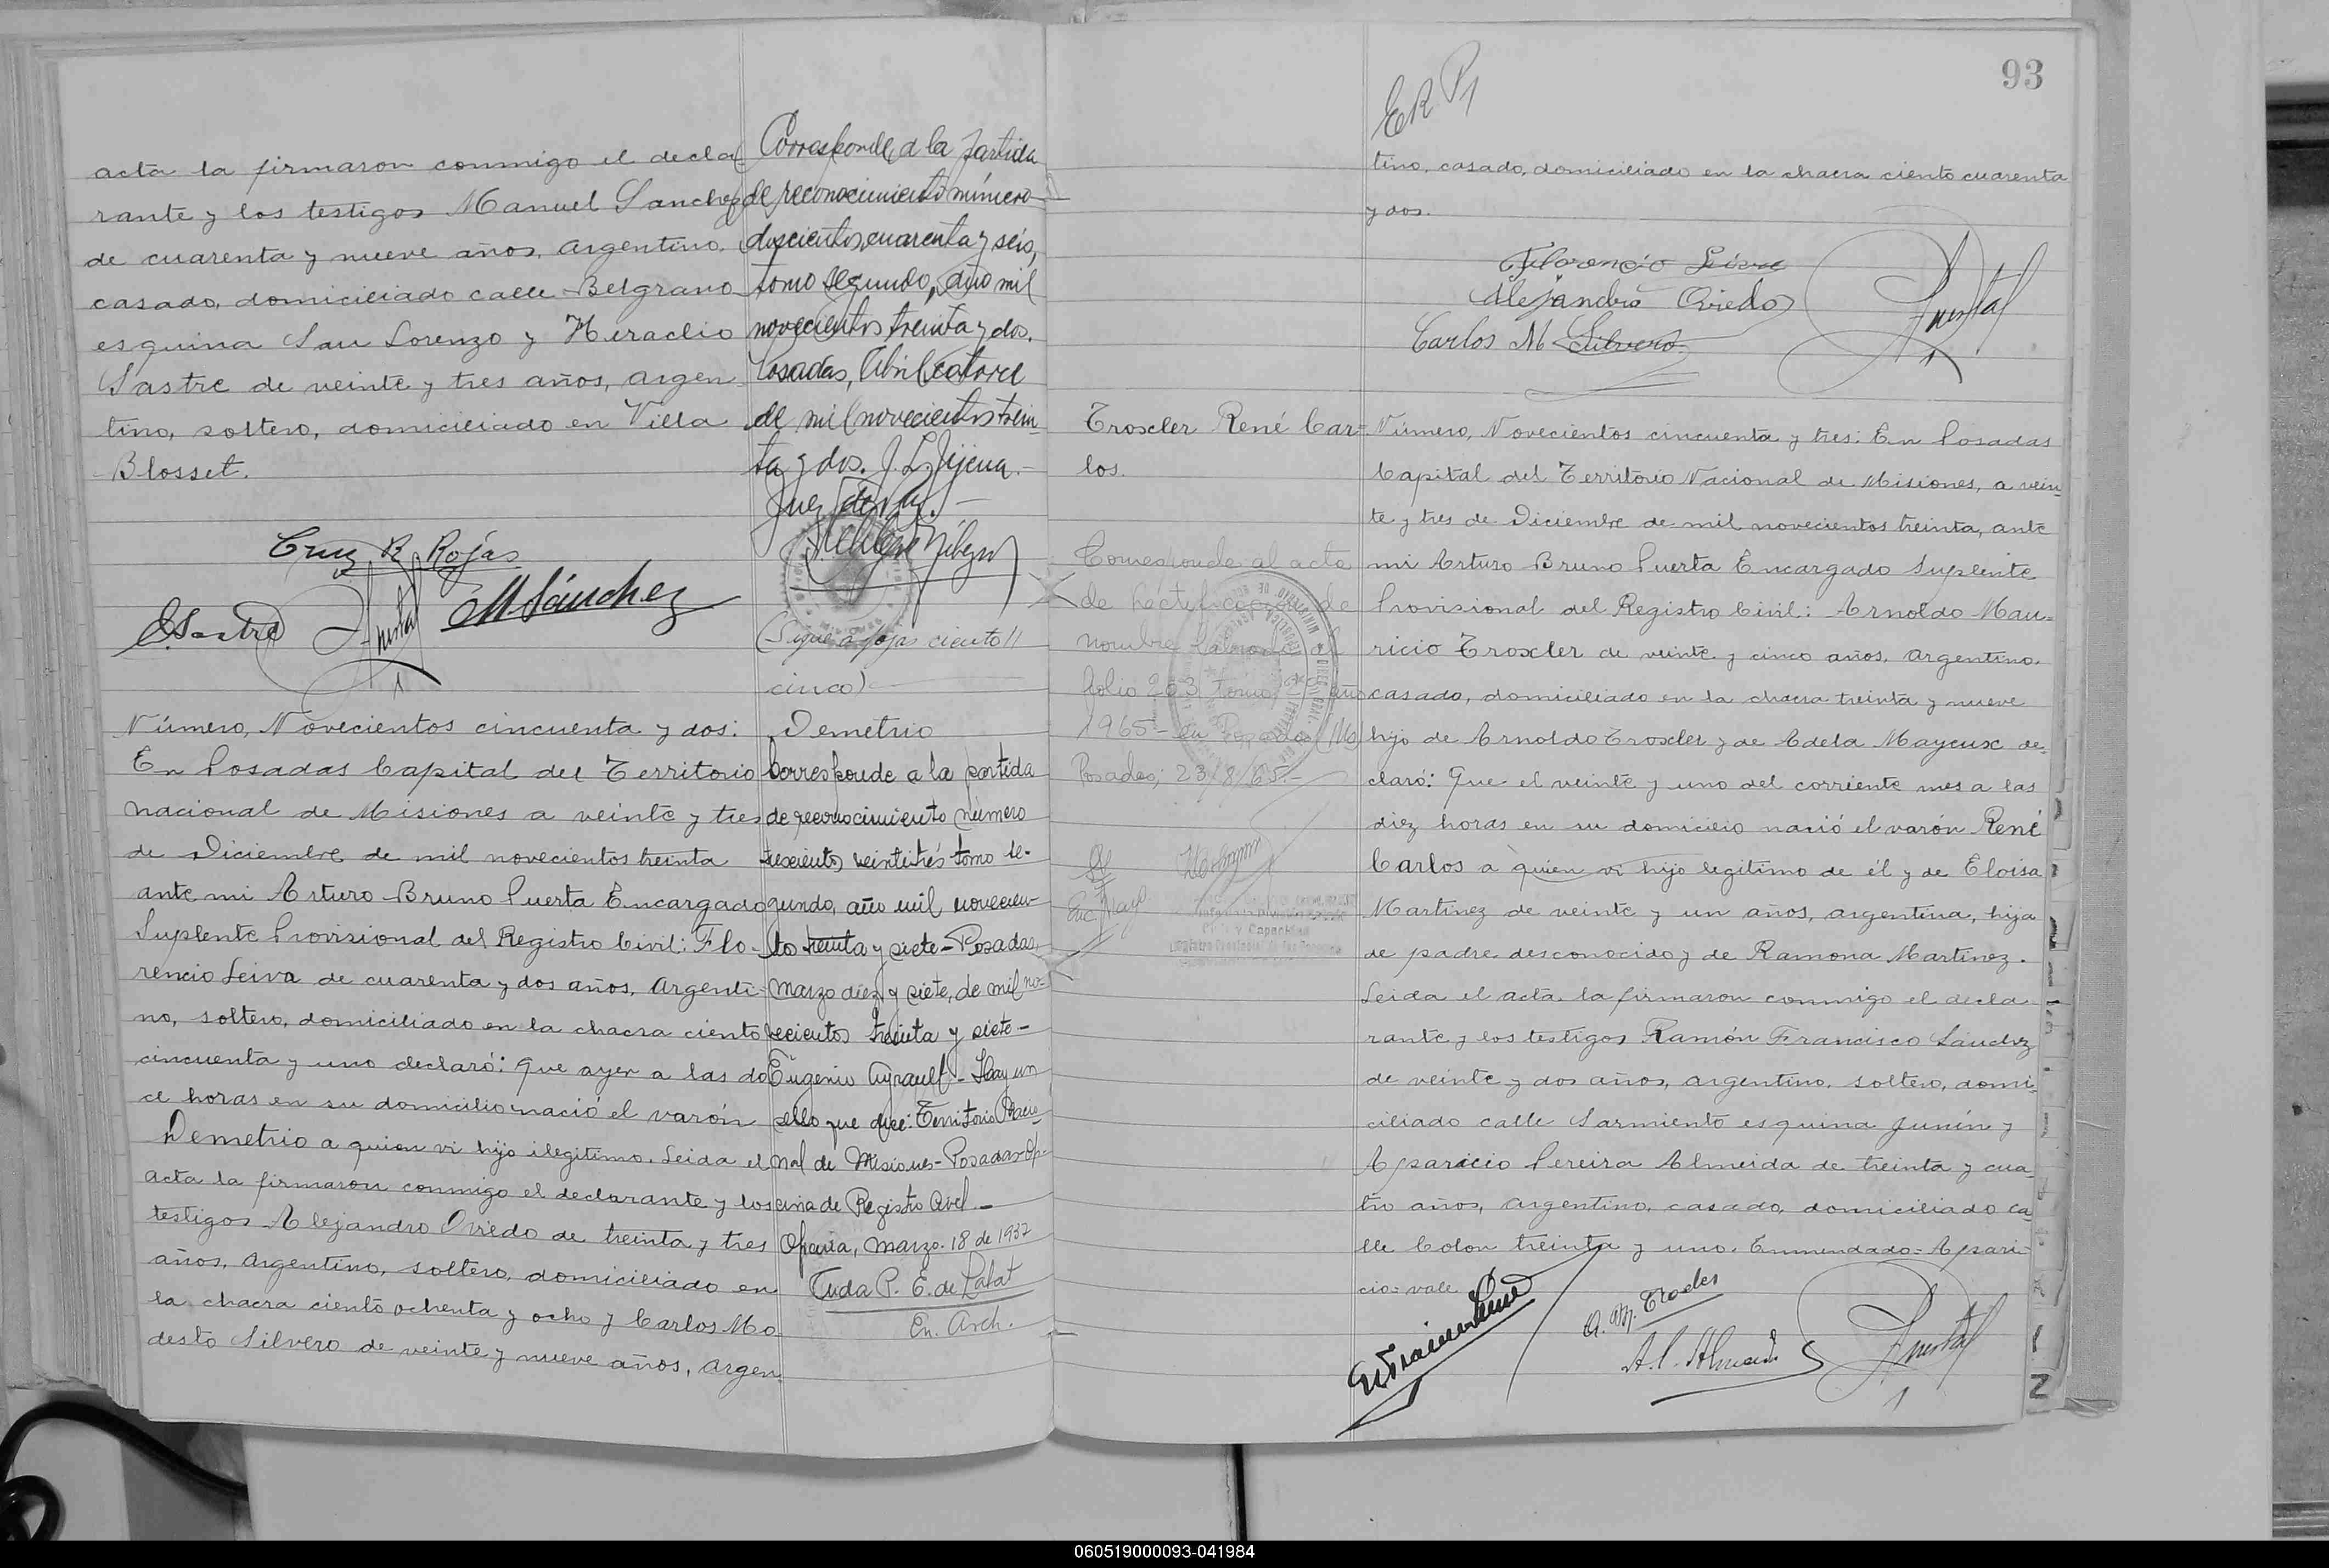 acta la firmaron conmigo el decla
rante y los testigos Manuel Sanchez
de cuarenta y nueve años, argentino,
casado, domiciliado calle Belgrano
esquina San Lorenzo y Heraclio
Sastre de veinte y tres años, argen
tino, soltero, domiciliado en Villa
Blosset.
Cruz R Rojas
M Sánchez
Corresponde a la partida
de reconocimiento número
doscientos cuarenta y seis,
tomo segundo, año mil
novecientos treinta y dos.
Posadas, Abril catorce
de mil novecientos trein-
ta y dos. J. L. Jijena.-
Juez de Paz.-
(Sigue a fojas ciento
cinco)
Número, Novecientos cincuenta y dos:
En Posadas Capital del Territorio
nacional de Misiones a veinte y tres
de Diciembre de mil novecientos treinta
ante mi Arturo Bruno Puerta Encargado
Suplente Provisional del Registro Civil: Flo-
rencio Leiva de cuarenta y dos años, argenti-
no, soltero, domiciliado en la chacra ciento
cincuenta y uno declaró: Que ayer a las do
ce horas en su domicilio nació el varón
Demetrio a quien vi hijo ilegitimo. Leida el
acta la firmaron conmigo el declarante y los
testigos Alejandro Oviedo de treinta y tres
años, argentino, soltero, domiciliado en
la chacra ciento ochenta y ocho y Carlos Mo
desto Silvero de veinte y nueve años, argen
Demetrio
Corresponde a la partida
de reconocimiento número
trescientos veintitrés tomo se-
gundo, año mil novecien-
tos treinta y siete-Posadas,
marzo diez y siete, de mil no-
vecientos treinta y siete-
Eugenio Ayrault-Hay un
sello que dice: Territorio Nacio-
nal de Misiones-Posadas-Ofi-
cina de Registro Civil.-
Oficina, marzo 18 de 1937
En. Arch.
93
tino, casado, domiciliado en la chacra ciento cuarenta
y dos.
Florencio Leiva
Alejandro Oviedo
Carlos M Silvero
Troxler René Car=
los.
Corresponde al acta
de
nombre labrada al
folio 203 tomo año
1965- en Posadas
Posadas, 23/8/65.-
Número, Novecientos cincuenta y tres: En Posadas
Capital del Territorio Nacional de Misiones, a vein
te y tres de Diciembre de mil novecientos treinta, ante
mi Arturo Bruno Puerta Encargado Suplente
Provisional del Registro Civil: Arnoldo Mau=
ricio Troxler de veinte y cinco años, argentino,
casado, domiciliado en la chacra treinta y nueve
hijo de Arnoldo Troxler y de Adela Mayeux de
claró: Que el veinte y uno del corriente mes a las
diez horas en su domicilio nació el varón René
Carlos a quien vi hijo legitimo de él y de Eloisa
Martinez de veinte y un años, argentina, hija
de padre desconocido y de Ramona Martinez.
Leida el acta la firmaron conmigo el decla
rante y los testigos Ramón Francisco Sánchez
de veinte y dos años, argentino, soltero, domi
ciliado calle Sarmiento esquina Junín y
Aparicio Pereira Almeida de treinta y cua
tro años, argentino, casado, domiciliado ca
lle Colon treinta y uno. Enmendado=Apari
cio=vale
060519000093-041984